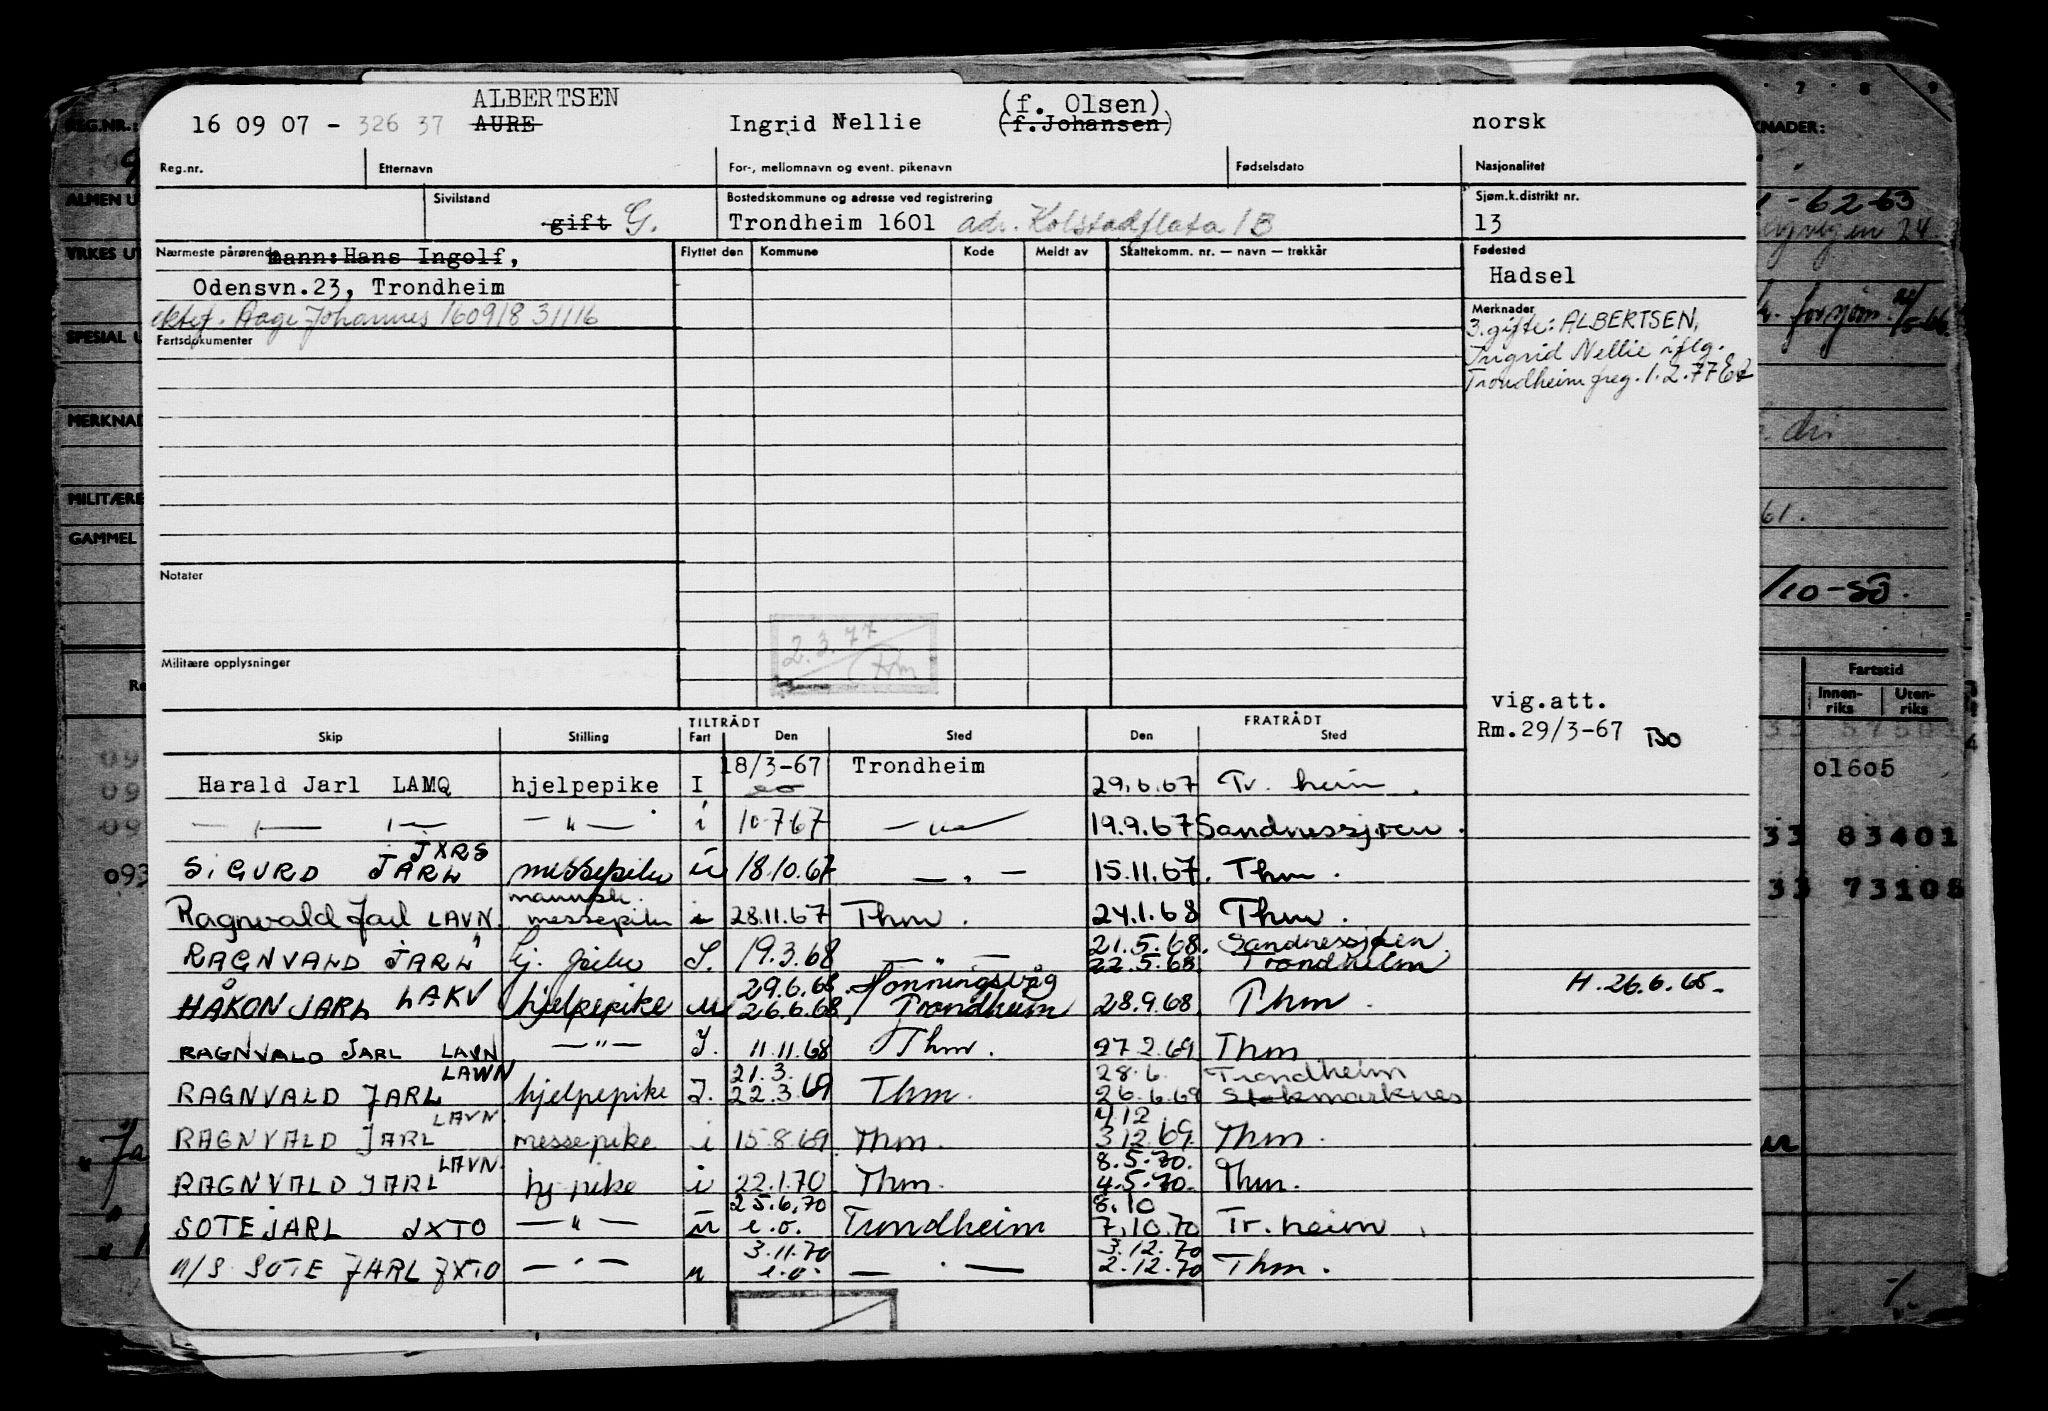 ALBERTSEN (f. Olsen)
16 09 07 - 326 37 AURE Ingrid Nellie (f.Johansen) norsk
Reg.nr. Etternavn For-, mellomnavn og event. pikenavn Fødselsdato Nasjonalitet
Sivilstand Bostedskommune og adresse ved registrering Sjøm.k.distrikt nr.
gift G. Trondheim 1601 adr. Kolstadflata 1B 13
Nærmeste pårørende mann: Hans Ingolf, Flyttet den Kommune Kode Meldt av Skattekomm. nr. – navn – trekkår Fødested
Odensvn.23, Trondheim Hadsel
ektef. Aage Johannes 160918 31116 Merknader
3. gifte: ALBERTSEN,
Fartsdokumenter Ingrid Nellie iflg.
Trondheim freg. 1.2.77
Notater
2.3.77
Militære opplysninger
vig.att.
Rm.29/3-67 BO
TILTRÅDT FRATRÅDT
Skip Stilling Fart Den Sted Den Sted
18/3-67 Trondheim
Harald Jarl LAMQ hjelpepike I eo 29.6.67 Tr. heim.
— " — " — — " — i 10-7 67 — " — 19.9.67 Sandnessjøen.
JXRS
SIGURD JARL messepike u 18.10.67 — " — 15.11.67. Thm.
Ragnvald Jarl LAVN messepike i 28.11.67 Thm. 24.1.68 Thm.
21.5.68. Sandnessjøen
RAGNVALD JARL " hj. pike I. 19.3.68 — " — 22.5.68 Trondheim
29.6.68. Honningsvåg H. 26.6.68.
HÅKON JARL LAKV hjelpepike u 26.6.68, Trondheim 28.9.68 Thm.
RAGNVALD JARL LAVN — " — I. 11.11.68 Thm. 27.2.69 Thm
LAWN 21.3. 28.6. Trondheim
RAGNVALD JARL hjelpepike I. 22.3.69 Thm. 26.6.69 Stokmarknes
LAVN 4.12
RAGNVALD JARL messepike i 15.8.69 Thm. 3.12.69. Thm.
LAVN 8.5.70.
RAGNVALD JARL hj pike i 22.1.70 Thm. 4.5.70. Thm.
25.6.70 8.10
SOTE JARL JXTO — " — u e.o. Trondheim 7.10.70 Tr.heim.
3.11.70 3.12.70
M/S SOTE JARL JXTO — " — u e.o. — " — 2.12.70 Thm.
REG.NR.:
ALMEN U
YRKES U
SPESIAL U
MERKNAD
MILITÆRE
GAMMEL
KNADER:
-62-63
24.
61.
/10-50.
Fartstid
Innen-riks Uten-riks
01605
33 83401
33 73105
093